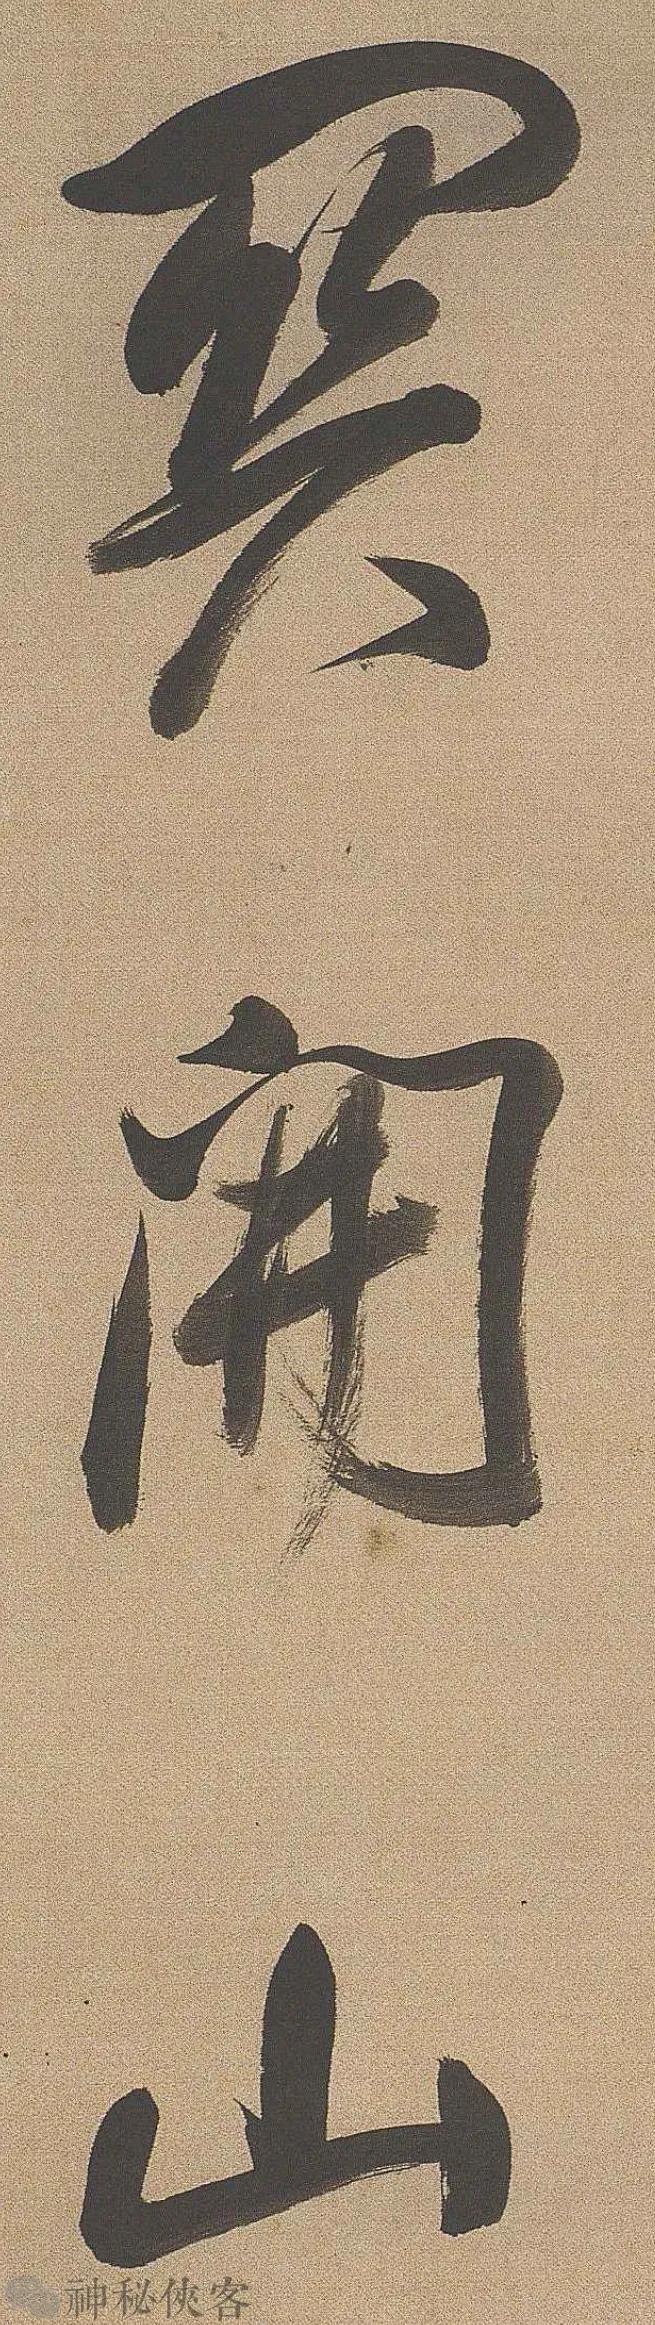 開
山
神秘俠客